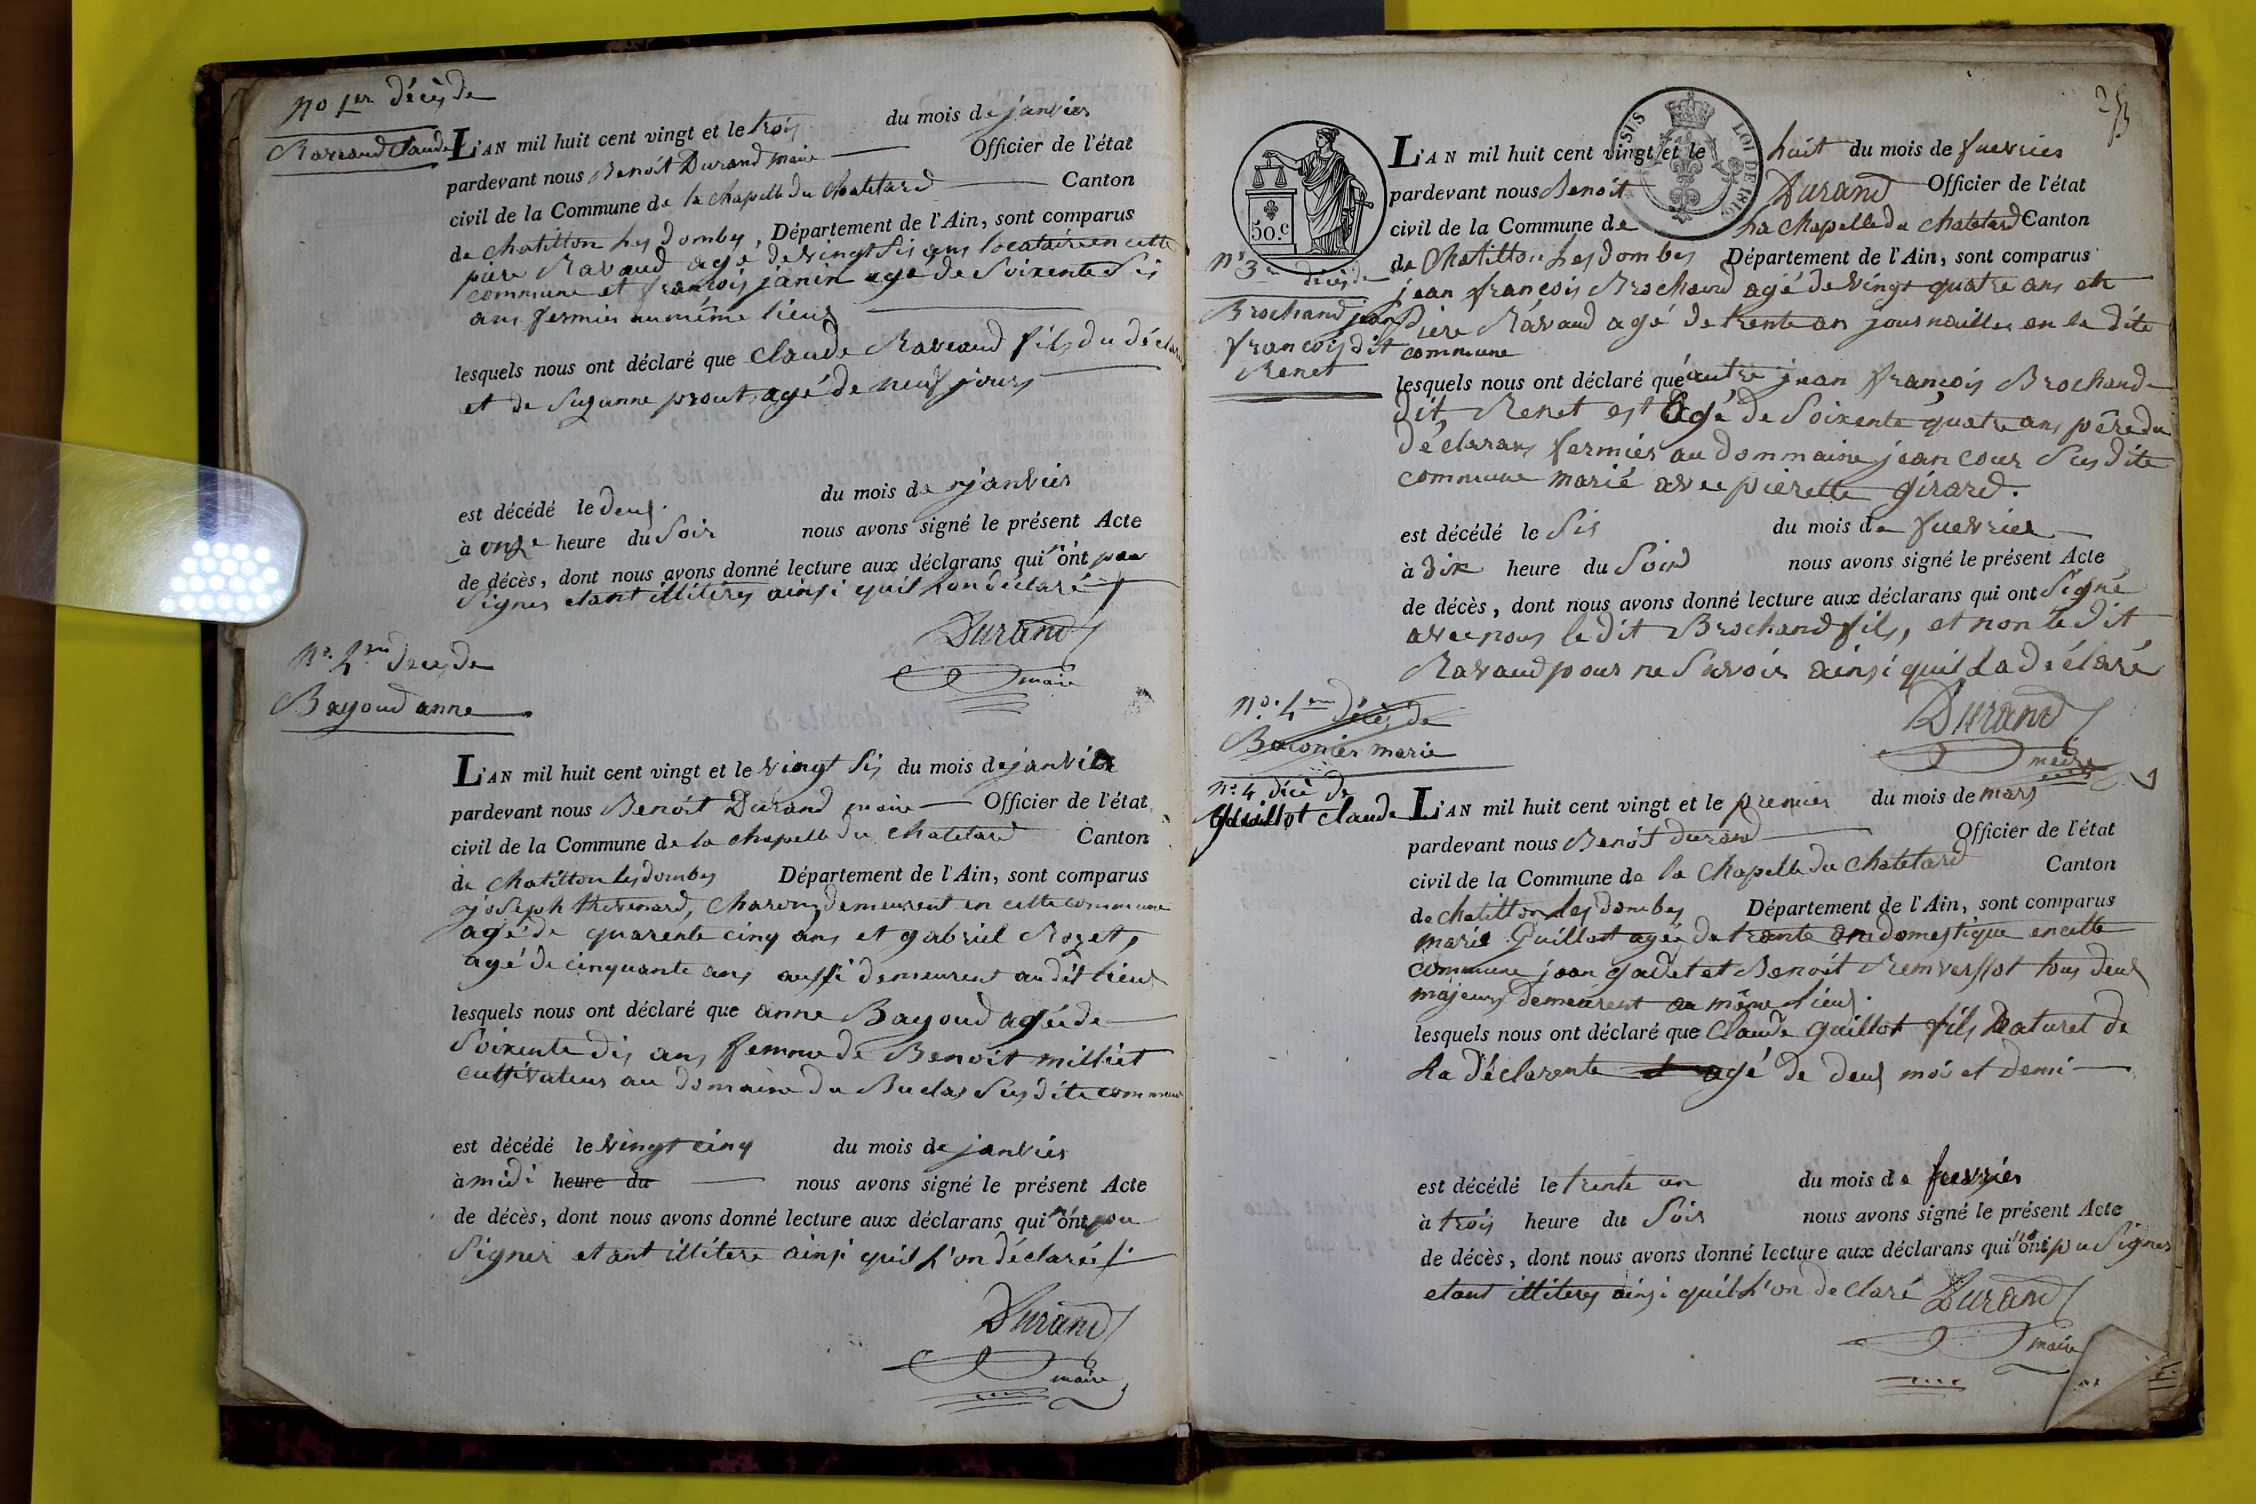 no 1er décès de
Ravaud Claude
L'AN mil huit cent vingt et le trois du mois de janvier
pardevant nous Benoit Durand maire Officier de l'état
civil de la Commune de la Chapelle du Chatelard Canton
de Chatillon les Dombes, Département de l'Ain, sont comparus
piere Ravaud agé de vingt sis ans locataire en cette
commune et françois janin agé de Soixente Sis
ans fermier au même lieux
lesquels nous ont déclaré que Claude Ravaud fils du déclar
et de Suzanne prout, agé de neuf jours
est décédé le deux du mois de janvier
à onze heure du Soir nous avons signé le présent Acte
de décès, dont nous avons donné lecture aux déclarans qui n'ont peu
Signer etant illitéres ainsi quil l'on déclaré
Durand
maire
No. 2me décès de
Bayoud anne
L'AN mil huit cent vingt et le vingt Sis du mois de janvier
pardevant nous Benoit Durand maire Officier de l'état
civil de la Commune de la chapelle du chatelard Canton
de Chatillon les dombes Département de l'Ain, sont comparus
joseph thevenard, Charon demeurent en cette commune
agé de quarente cinq ans et gabriel Rozet,
agé de cinquante ans aussi demeurent au dit lieux
lesquels nous ont déclaré que anne Bayoud agée de
Soixente dis ans femme de Benoit milliet
cultivateur au domaine du Buclas Susdite commune
est décédé le vingt cinq du mois de janvier
à midi heure du nous avons signé le présent Acte
de décès, dont nous avons donné lecture aux déclarans qui n'ont pu
Signer etant illitére ainsi quil l'on déclaré
Durand
maire
25
SES LOI DE 1816
50.c
L'AN mil huit cent vingt et le huit du mois de fuevrier
pardevant nous Benoit Durand Officier de l'état
civil de la Commune de La Chapelle du chatelard Canton
de Chatillon Les dombes Département de l'Ain, sont comparus
No 3e décès de
Brochand jean
francois dit
Renet
jean françois Brochand agé de vingt quatre ans et
Piere Ravaud agé de trente an journailler en la dite
commune
lesquels nous ont déclaré que autre jean françois Brochand
dit Renet est agé de Soixente quatre ans père du
déclarans fermier au dommaine jean cour Susdite
commune marié avec pierette girard.
est décédé le Sis du mois de fuevrier
à dix heure du Soir nous avons signé le présent Acte
de décès, dont nous avons donné lecture aux déclarans qui ont Signé
avec nous le dit Brochand fils, et non le dit
Ravaud pour ne Savoir ainsi quil La déclaré
Durand
maire
No. 4me décès de
Baconier marie
No. 4 décè de
Guillot claude
L'AN mil huit cent vingt et le premier du mois de mars
pardevant nous Benoit durand Officier de l'état
civil de la Commune de la Chapelle du Chatelard Canton
de chatillon les dombes Département de l'Ain, sont comparus
marie Guillot agée de trente an domestique en cette
commune jean gadet et Benoit Remverssot tous deux
majeurs demeurent au même Lieux.
lesquels nous ont déclaré que Claude guillot fils Naturel de
La déclarente agé de deux mois et demi
est décédé le trente un du mois de fuevrier
à trois heure du Soir nous avons signé le présent Acte
de décès, dont nous avons donné lecture aux déclarans qui n'ont pu Signer
etant illitéres ainsi quil L'on declaré Durand
maire